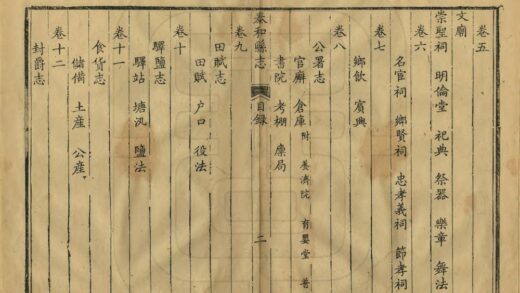 卷五
文廟
崇聖祠 明倫堂 祀典 祭器 樂章 舞法
卷六
名宦祠 鄉賢祠 忠孝義祠 節孝祠
卷七
鄉飲 賓興
卷八
公署志
官廨 倉庫 附 養濟院 育嬰堂 普
書院 考棚 廩局
泰和縣志 目錄 二
卷九
田賦志
田賦 户口 役法
卷十
驛鹽志
驛站 塘汛 鹽法
卷十一
食貨志
儲備 土産 公産
卷十二
封爵志